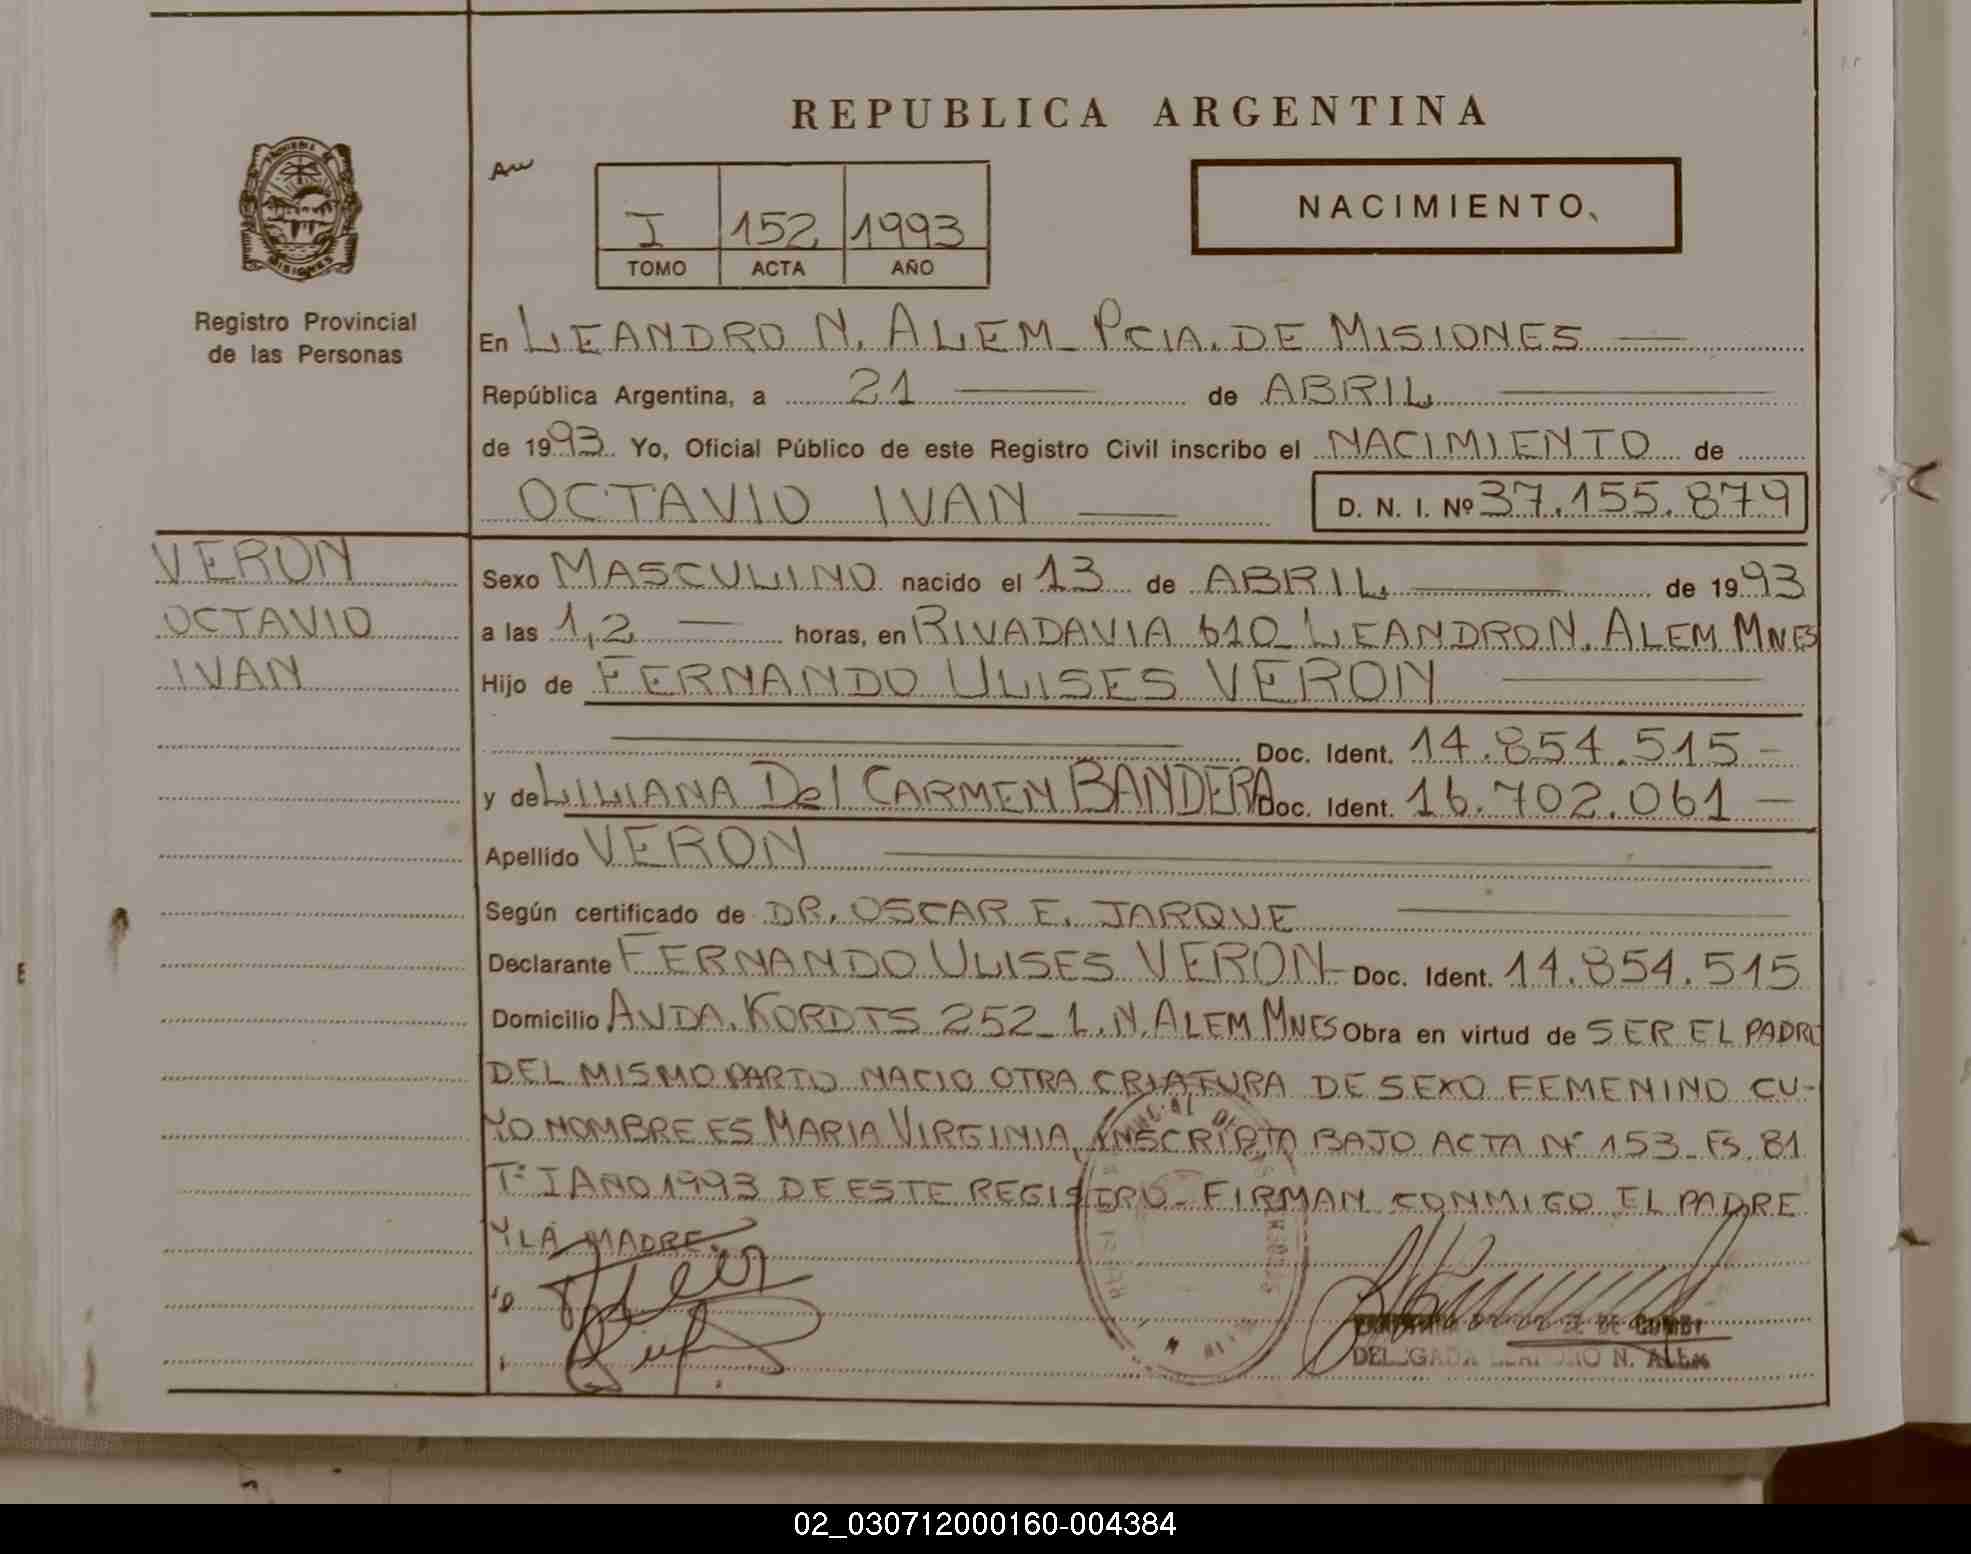 REPUBLICA ARGENTINA
I 152 1993
TOMO ACTA AÑO
NACIMIENTO
Registro Provincial
de las Personas
En LEANDRO N. ALEM - PCIA. DE MISIONES
República Argentina, a 21 de ABRIL
de 1993. Yo, Oficial Público de este Registro Civil inscribo el NACIMIENTO de
OCTAVIO IVAN D. N. I. Nº 37.155.879
VERON
OCTAVIO
IVAN
Sexo MASCULINO nacido el 13 de ABRIL de 1993
a las 1,2 horas, en RIVADAVIA 610 - LEANDRO N. ALEM MNES
Hijo de FERNANDO ULISES VERON
Doc. Ident. 14.854.515-
y de LILIANA Del CARMEN BANDERA Doc. Ident. 16.702.061-
Apellido VERON
Según certificado de DR. OSCAR E. JARQUE
Declarante FERNANDO ULISES VERON- Doc. Ident. 14.854.515
Domicilio AVDA. KORDTS 252 - L.N. ALEM MNES Obra en virtud de SER EL PADRE
DEL MISMO PARTO NACIO OTRA CRIATURA DE SEXO FEMENINO CU-
YO NOMBRE ES MARIA VIRGINIA, INSCRIPTA BAJO ACTA Nº 153 - FS. 81
Tº I AÑO 1993 DE ESTE REGISTRO - FIRMAN CONMIGO EL PADRE
Y LA MADRE.
DELEGADA LEANDRO N. ALEM
02_030712000160-004384